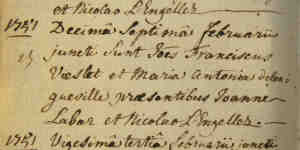 et Nicolao L'Engellez
1751 Decimâ Septimâ februarii
juncti Sunt Joēs Franciscus
Vœslet et Maria Antonia delon
gueville præsentibus Joanne
Labar et Nicolao L'Engellez.
1751 Vigesimâ tertiâ februarii juncti